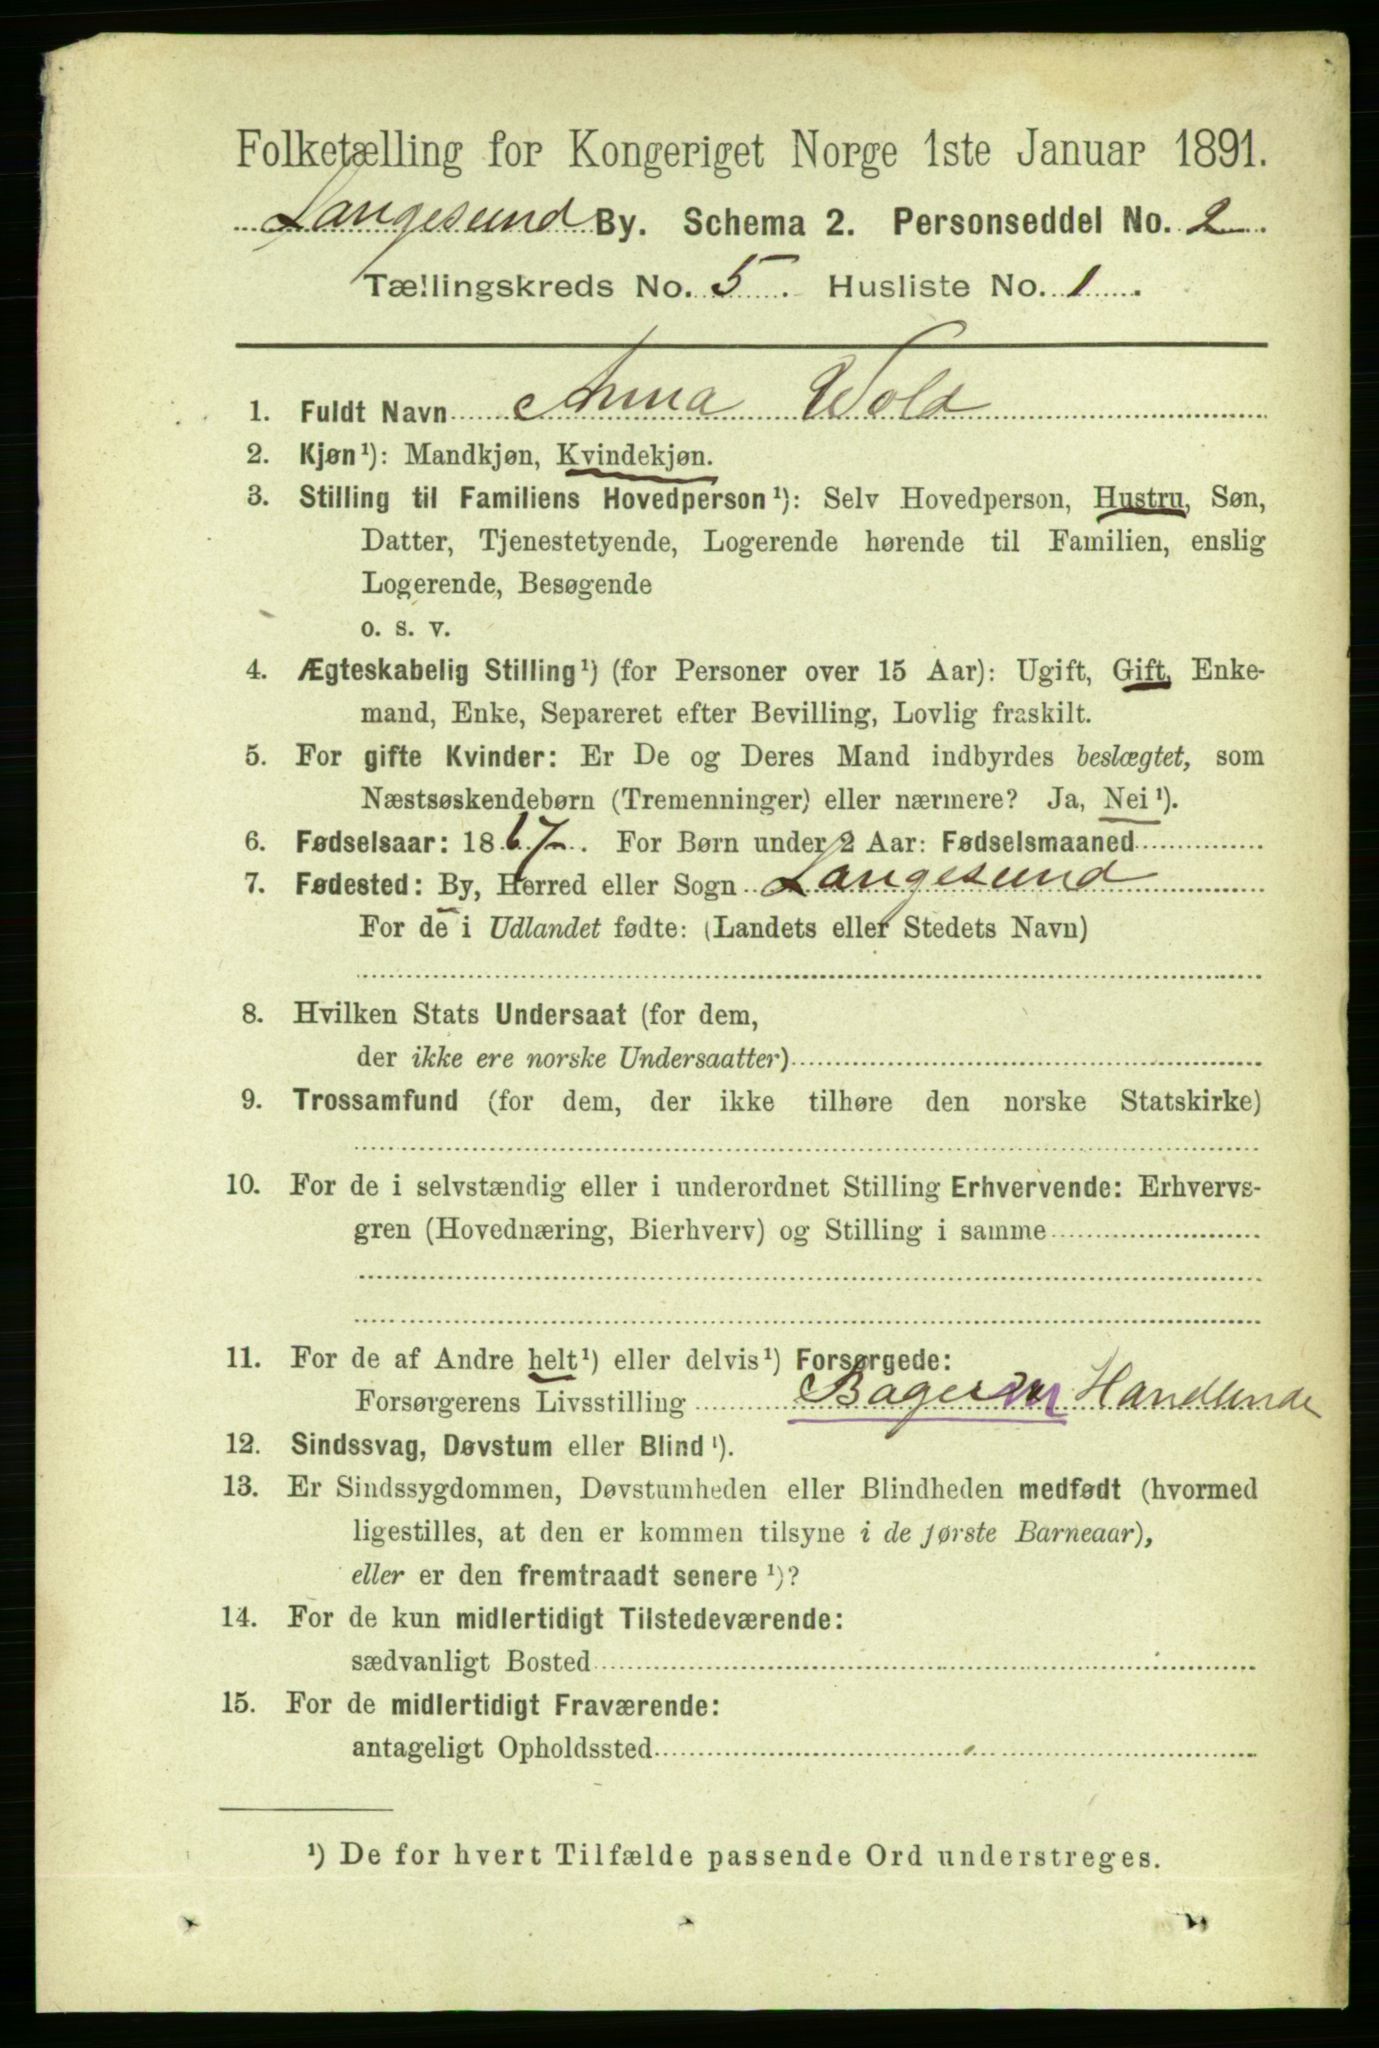 Folketælling for Kongeriget Norge 1ste Januar 1891.
Langesund By. Schema 2. Personseddel No. 2
Tællingskreds No. 5. Husliste No. 1.
1. Fuldt Navn Anna Wold
2. Kjøn¹): Mandkjøn, Kvindekjøn.
3. Stilling til Familiens Hovedperson¹): Selv Hovedperson, Hustru, Søn,
Datter, Tjenestetyende, Logerende hørende til Familien, enslig
Logerende, Besøgende
o. s. v.
4. Ægteskabelig Stilling¹) (for Personer over 15 Aar): Ugift, Gift, Enke-
mand, Enke, Separeret efter Bevilling, Lovlig fraskilt.
5. For gifte Kvinder: Er De og Deres Mand indbyrdes beslægtet, som
Næstsøskendebørn (Tremenninger) eller nærmere? Ja, Nei¹).
6. Fødselsaar: 1867. For Børn under 2 Aar: Fødselsmaaned
7. Fødested: By, Herred eller Sogn Langesund
For de i Udlandet fødte: (Landets eller Stedets Navn)
8. Hvilken Stats Undersaat (for dem,
der ikke ere norske Undersaatter)
9. Trossamfund (for dem, der ikke tilhøre den norske Statskirke)
10. For de i selvstændig eller i underordnet Stilling Erhvervende: Erhvervs-
gren (Hovednæring, Bierhverv) og Stilling i samme
11. For de af Andre helt¹) eller delvis¹) Forsørgede:
Forsørgerens Livsstilling Bager Handlende
12. Sindssvag, Døvstum eller Blind¹).
13. Er Sindssygdommen, Døvstumheden eller Blindheden medfødt (hvormed
ligestilles, at den er kommen tilsyne i de første Barneaar),
eller er den fremtraadt senere¹)?
14. For de kun midlertidigt Tilstedeværende:
sædvanligt Bosted
15. For de midlertidigt Fraværende:
antageligt Opholdssted
¹) De for hvert Tilfælde passende Ord understreges.